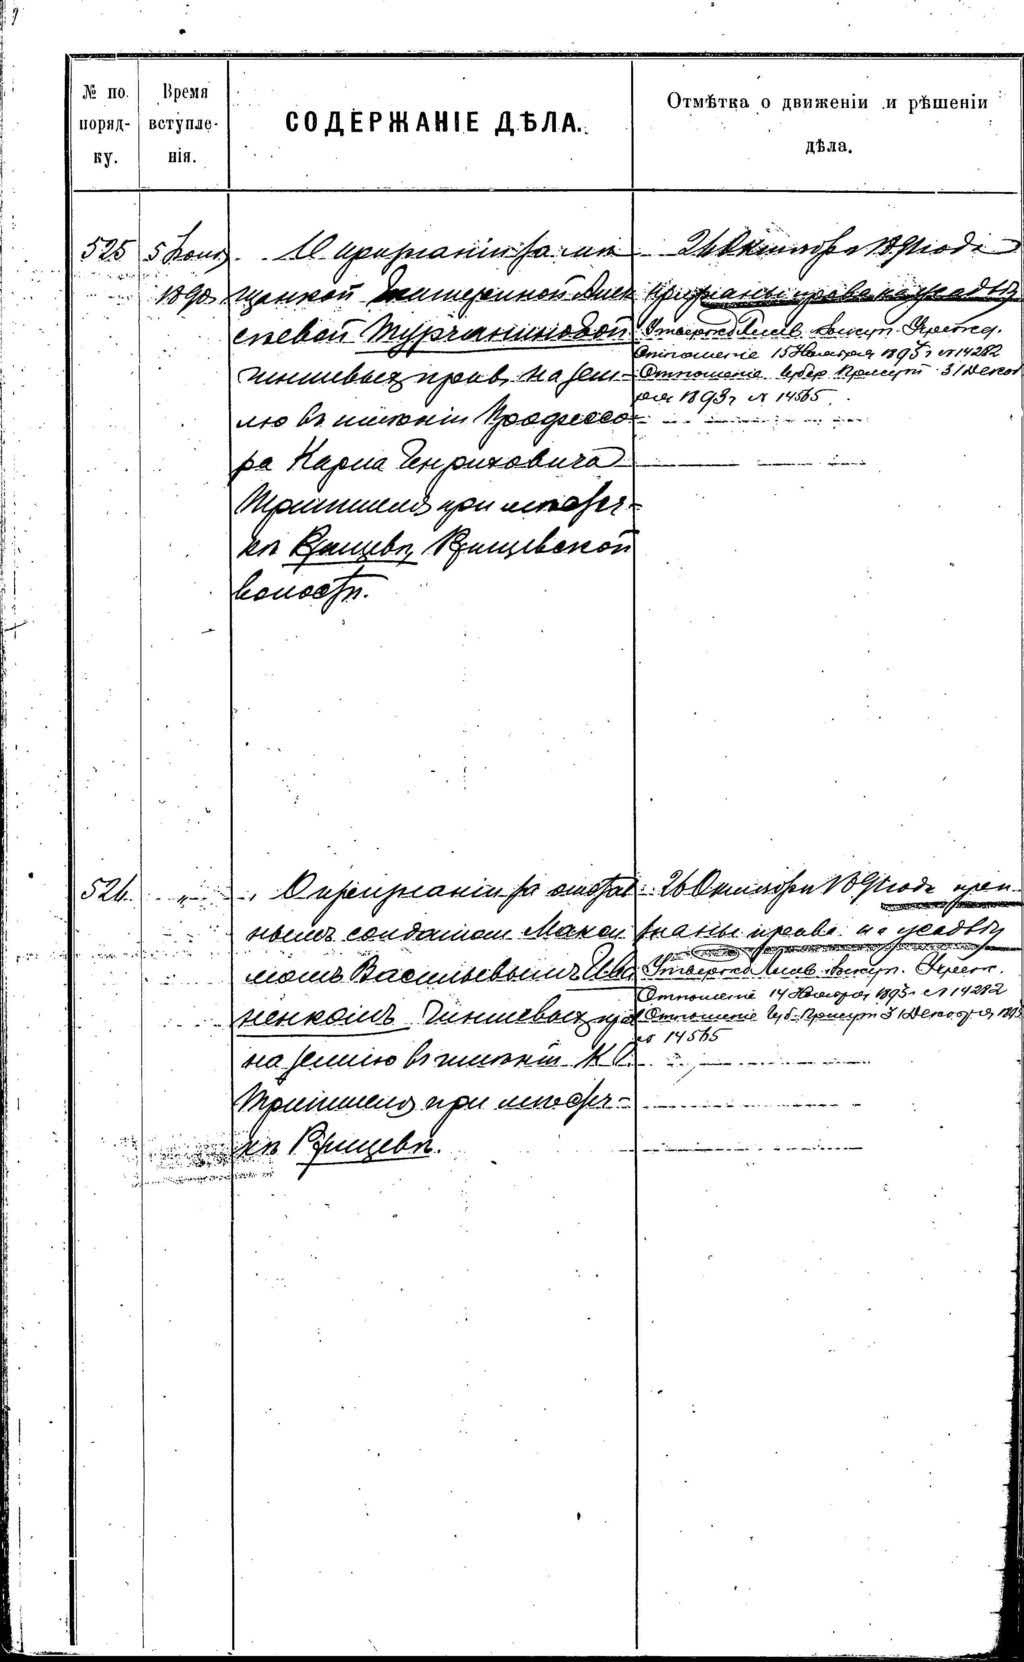 № по поряд-ку.
Время вступле-нія.
СОДЕРЖАНІЕ ДѢЛА.
Отмѣтка о движеніи и рѣшеніи
дѣла.
525
5 Іюня
1890
О признаніи за мѣ
щанкой Екатериной Алек
сѣевой Турчаниновой
чиншевыхъ правъ на зем-
лю въ имѣніи Профессо-
ра Карла Генриховича
Тритшеля при мѣстеч-
кѣ Ржищевѣ, Ржищевской
волости.
26 Октября 1891 года
признаны права на усадьбу
15 Ноября 1893 г № 14282
Отношеніе Губер Присут 31 Декаб
ря 1893 г № 14565
526.
"
О признаніи за отстав
нымъ солдатом Макси
момъ Васильевымъ Ива
ненкомъ чиншевыхъ прав
на землю въ имѣніи К. Г.
Тритшеля при мѣстеч-
кѣ Ржищевѣ.
26 Октября 1891 года при
знаны права на усадьбу
Отношеніе 14 Ноября 1893 г № 14282
Отношеніе Губ. Присут 31 Декабря 1893
№ 14565